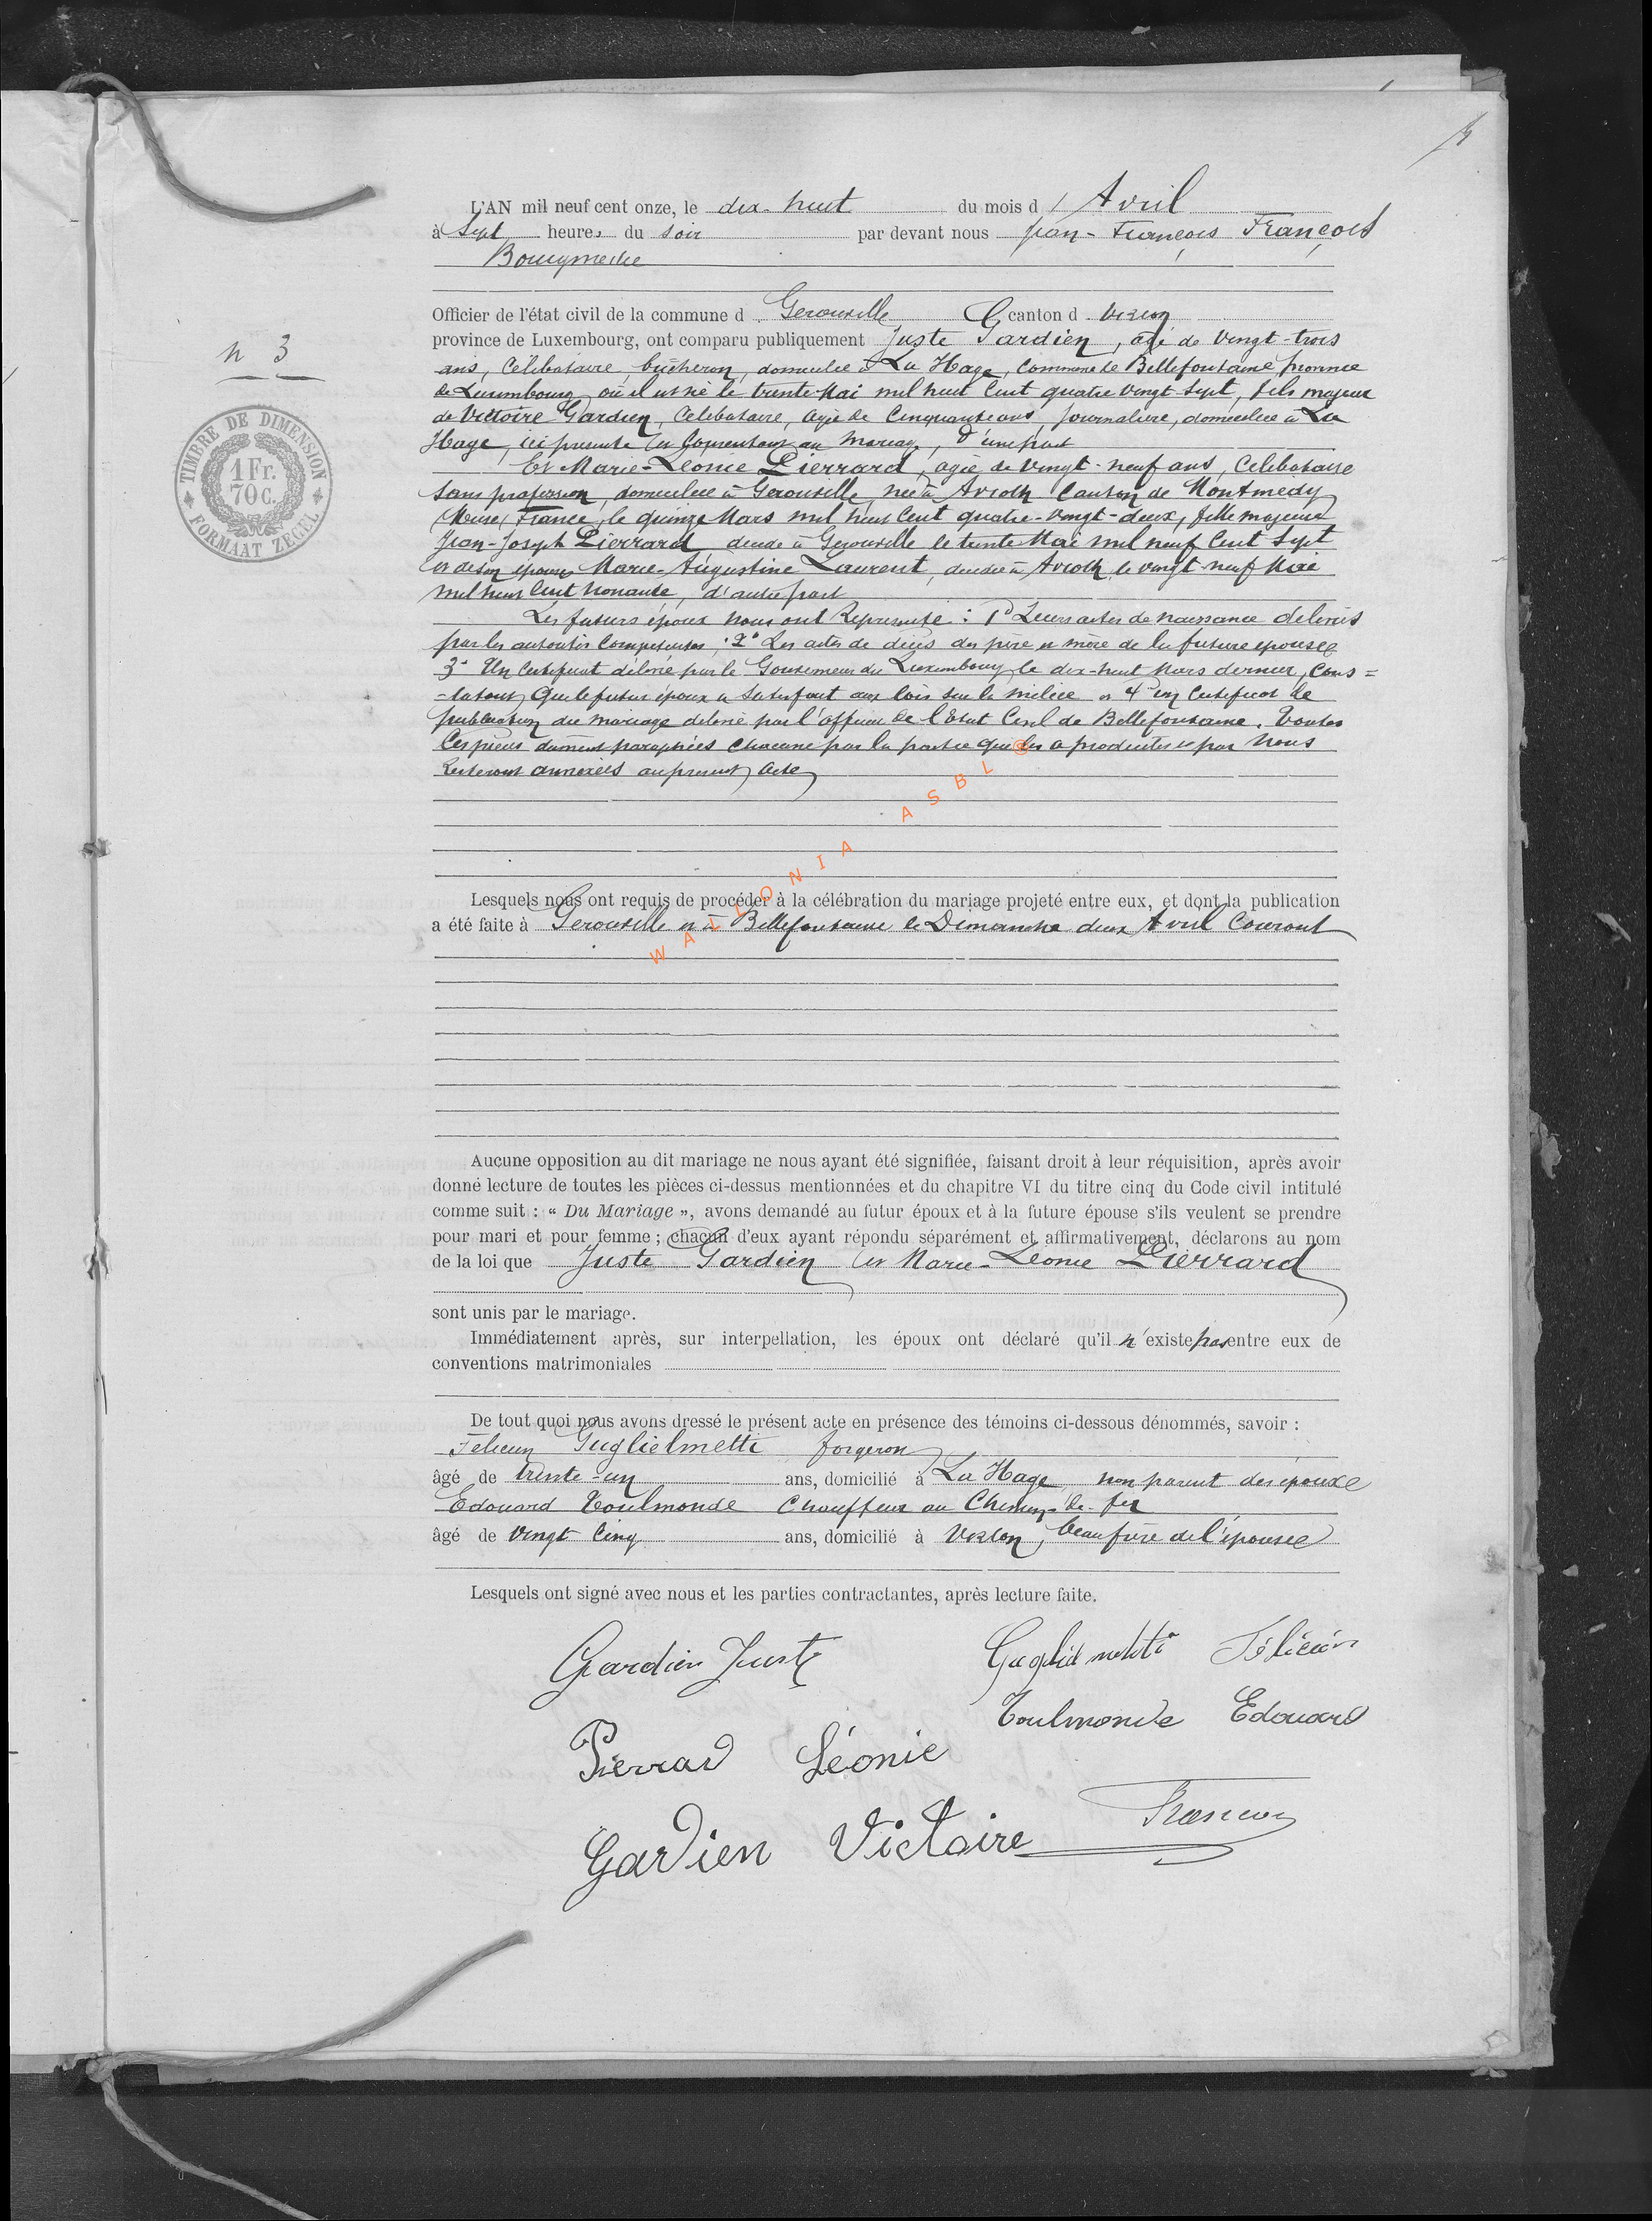 L'AN mil neuf cent onze, le dix-huit du mois d'Avril
à Sept heures du soir par devant nous Jean-François François
Bourgmestre
Officier de l'état civil de la commune d Gerouville canton d Virton
n 3
province de Luxembourg, ont comparu publiquement Juste Gardien, agé de Vingt-trois
ans, Célibataire, bûcheron, domicilié à La Hage, Commune de Bellefontaine province
de Luxembourg où il est né le trente Mai mil huit Cent quatre vingt Sept, fils majeur
de Victoire Gardien, Célibataire, agée de Cinquante ans, Journalière, domiciliée à La
Hage, ici présente et Consentant au mariage, d'une part
Et Marie-Léonie Pierrard, agée de Vingt-neuf ans, Célibataire
Sans profession, domiciliée à Gerouville, née à Avioth Canton de Montmédy
Meuse, France, le quinze Mars mil huit Cent quatre-vingt-deux, fille majeure
Jean-Joseph Pierrard, décédé à Gerouville le trente Mai mil neuf Cent Sept
et de son épouse Marie-Augustine Laurent, décédée à Avioth le vingt-neuf Mai
mil huit Cent Nonante, d'autre part
Les futurs époux nous ont Représenté : 1° Leurs actes de naissance délivrés
par les autorités Compétentes ; 2° Les actes de décès des père et mère de la future épouse
3° Un Certificat délivré par le Gouverneur du Luxembourg le dix-huit Mars dernier, Cons=
-tatant que le futur époux a Satisfait aux lois sur la milice et 4° un Certificat de
publication du mariage délivré par l'officier de l'Etat Civil de Bellefontaine. Toutes
Ces pièces dûment paraphées chacune par la partie qui les a produites et par Nous
Resteront annexées au présent acte
WALLONIA ASBL ®
Lesquels nous ont requis de procéder à la célébration du mariage projeté entre eux, et dont la publication
a été faite à Gerouville et à Bellefontaine le Dimanche deux Avril Courant
Aucune opposition au dit mariage ne nous ayant été signifiée, faisant droit à leur réquisition, après avoir
donné lecture de toutes les pièces ci-dessus mentionnées et du chapitre VI du titre cinq du Code civil intitulé
comme suit : « Du Mariage », avons demandé au futur époux et à la future épouse s'ils veulent se prendre
pour mari et pour femme ; chacun d'eux ayant répondu séparément et affirmativement, déclarons au nom
de la loi que Juste Gardien et Marie-Léonie Pierrard
sont unis par le mariage.
Immédiatement après, sur interpellation, les époux ont déclaré qu'il n'existe pas entre eux de
conventions matrimoniales
De tout quoi nous avons dressé le présent acte en présence des témoins ci-dessous dénommés, savoir :
Félicien Guglielmetti forgeron
âgé de trente-un ans, domicilié à La Hage, non parent des époux
Edouard Toulmonde Chauffeur au Chemin-de-fer
âgé de Vingt Cinq ans, domicilié à Virton, beau frère de l'épouse
Lesquels ont signé avec nous et les parties contractantes, après lecture faite.
Gardien Juste
Guglielmetti Félicien
Toulmonde Edouard
Pierrard Léonie
François
Gardien Victoire
TIMBRE DE DIMENSION
1 Fr.
70 C.
FORMAAT ZEGEL